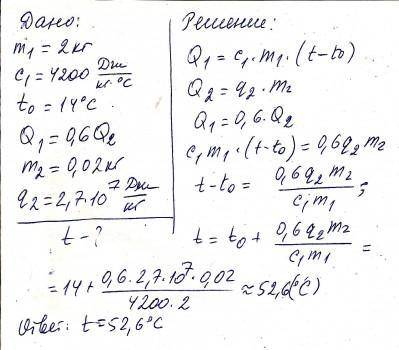 Дано:
m₁ = 2 кг
c₁ = 4200 Дж/кг·°C
t₀ = 14°C
Q₁ = 0,6Q₂
m₂ = 0,02 кг
q₂ = 2,7·10⁷ Дж/кг
t - ?
Решение:
Q₁ = c₁·m₁·(t-t₀)
Q₂ = q₂·m₂
Q₁ = 0,6·Q₂
c₁m₁·(t-t₀) = 0,6q₂m₂
t-t₀ = 0,6q₂m₂/c₁m₁;
t = t₀ + 0,6q₂m₂/c₁m₁ =
= 14 + 0,6·2,7·10⁷·0,02/4200·2 ≈ 52,6(°C)
Ответ: t = 52,6°C